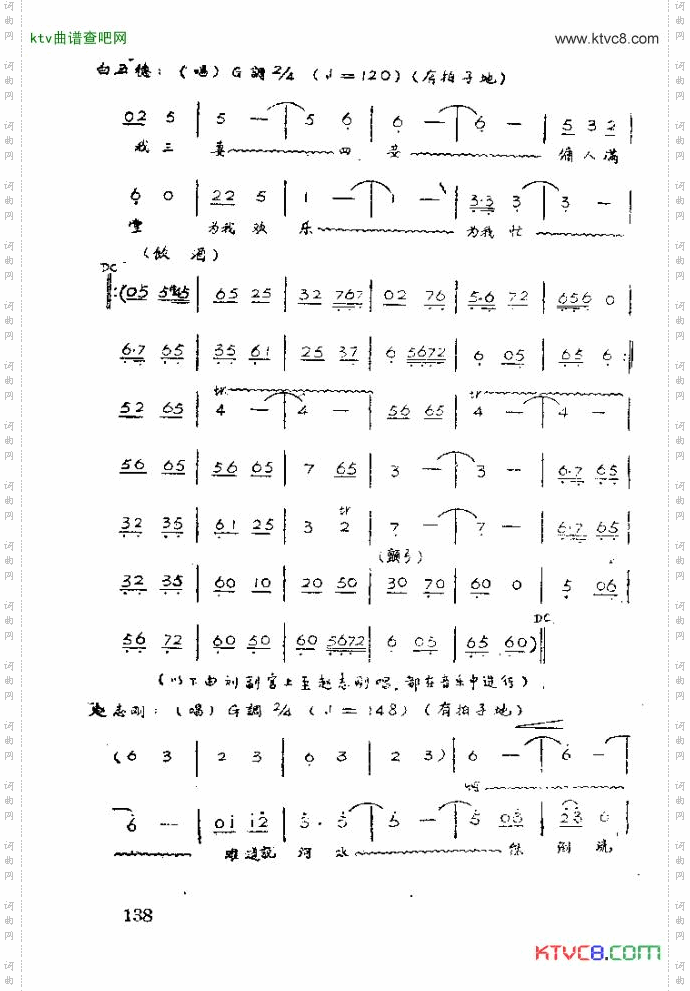 ktv曲谱查吧网 www.ktvc8.com
白五德：（唱）G調 2/4 （♩=120）（有拍子地）
02 5 | 5 — | 5 6 | 6 — | 6 — | 5 3 2 |
我三妻 四妾 倩人满
6 0 | 22 5 | 1 — | 1 — | 3·3 3 | 3 — |
堂 为我欢乐 为我忙
（飲酒）
DC
65 25 | 32 767 | 02 76 | 5·6 72 | 656 0 |
6·7 65 | 35 61 | 25 37 | 6 5672 | 6 05 | 65 6 :||
tr tr
52 65 | 4 — | 4 — | 56 65 | 4 — | 4 — |
56 65 | 56 65 | 7 65 | 3 — | 3 — | 6·7 65 |
tr
32 35 | 61 25 | 3 2 | 7 — | 7 — | 6·7 65 |
（颤弓）
32 35 | 60 10 | 20 50 | 30 70 | 60 0 | 5 06 |
DC
56 72 | 60 50 | 60 5672 | 6 05 | 65 60）||
（以下由刘副官上至赵志刚唱，都在音乐中进行）
赵志刚：（唱）G調 2/4 （♩=148）（有拍子地）
（6 3 | 2 3 | 6 3 | 2 3）| 6 — | 6 — |
啊
6 — | 01 12 | 3· 3 | 3 — | 5 03 | 23 6 |
难道說 河水 倒流
138
KTVC8.COM